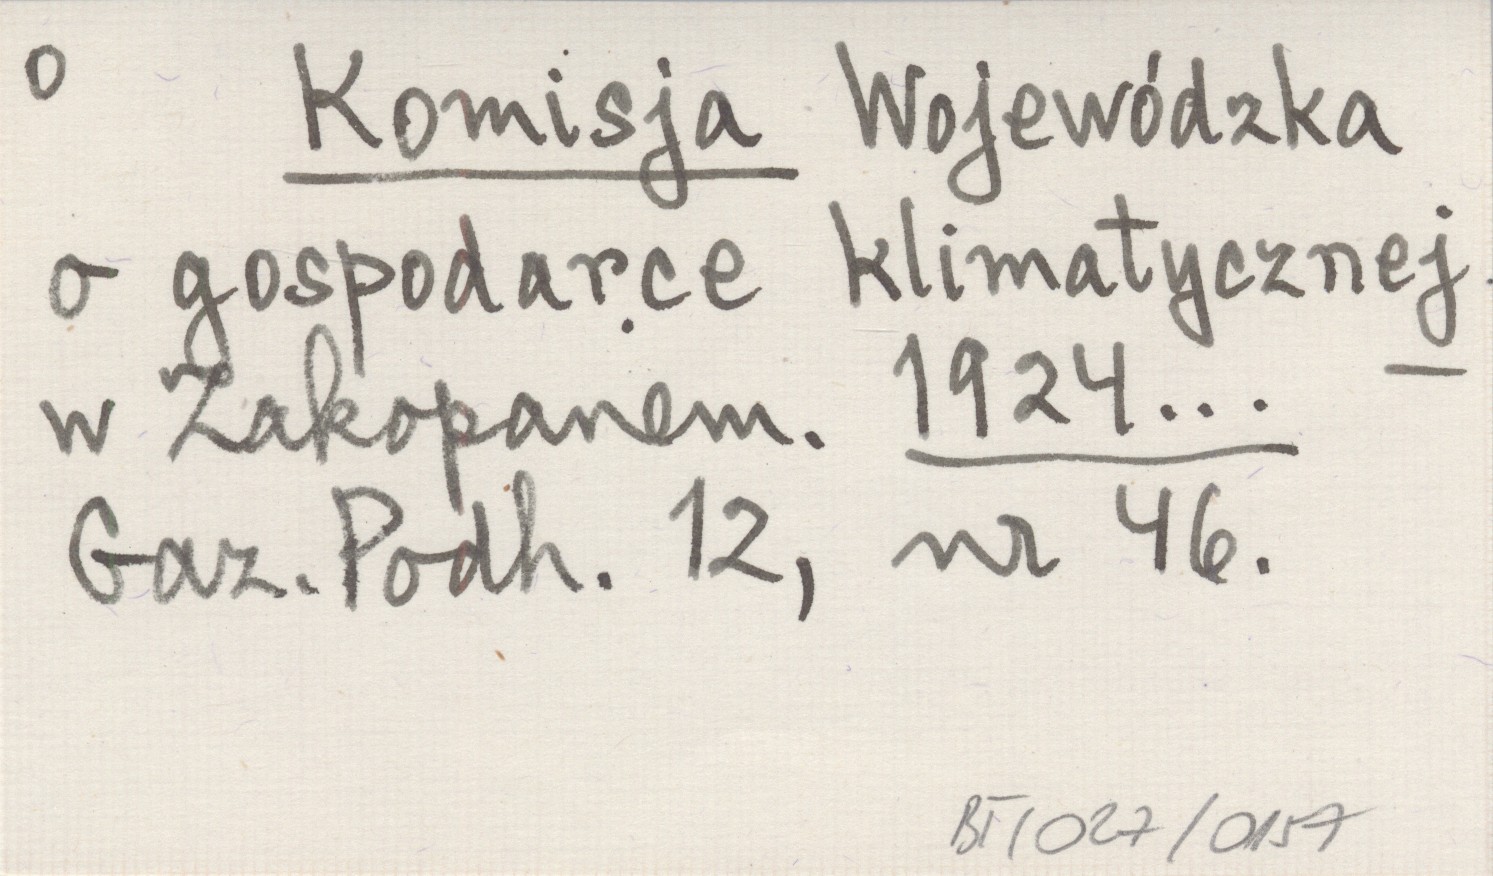 o Komisja Wojewódzka
o gospodarce klimatycznej
w Zakopanem. 1924...
Gaz. Podh. 12, nr 46.
BT/027/0157